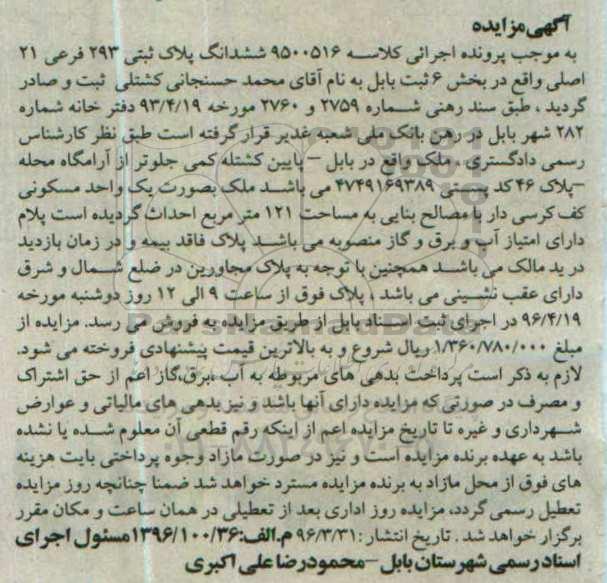 آگهی مزایده
به موجب پرونده اجرائی کلاسه ۹۵۰۰۵۱۶ ششدانگ پلاک ثبتی ۲۹۳ فرعی ۲۱
اصلی واقع در بخش ۶ ثبت بابل به نام آقای محمد حسنجانی کشتلی ثبت و صادر
گردید ، طبق سند رهنی شماره ۲۷۵۹ و ۲۷۶۰ مورخه ۹۳/۴/۱۹ دفتر خانه شماره
۲۸۲ شهر بابل در رهن بانک ملی شعبه غدیر قرار گرفته است طبق نظر کارشناس
رسمی دادگستری ، ملک واقع در بابل – پایین کشتله کمی جلوتر از آرامگاه محله
–پلاک ۴۶ کد پستی ۴۷۴۹۱۶۹۳۸۹ می باشد ملک بصورت یک واحد مسکونی
کف کرسی دار با مصالح بنایی به مساحت ۱۲۱ متر مربع احداث گردیده است پلام
دارای امتیاز آب و برق و گاز منصوبه می باشد پلاک فاقد بیمه و در زمان بازدید
در ید مالک می باشد همچنین با توجه به پلاک مجاورین در ضلع شمال و شرق
دارای عقب نشینی می باشد ، پلاک فوق از ساعت ۹ الی ۱۲ روز دوشنبه مورخه
۹۶/۴/۱۹ در اجرای ثبت اسناد بابل از طریق مزایده به فروش می رسد. مزایده از
مبلغ ۱/۳۶۰/۷۸۰/۰۰۰ ریال شروع و به بالاترین قیمت پیشنهادی فروخته می شود.
لازم به ذکر است پرداخت بدهی های مربوطه به آب ،برق،گاز اعم از حق اشتراک
و مصرف در صورتی که مزایده دارای آنها باشد و نیز بدهی های مالیاتی و عوارض
شهرداری و غیره تا تاریخ مزایده اعم از اینکه رقم قطعی آن معلوم شده یا نشده
باشد به عهده برنده مزایده است و نیز در صورت مازاد وجوه پرداختی بابت هزینه
های فوق از محل مازاد به برنده مزایده مسترد خواهد شد ضمنا چنانچه روز مزایده
تعطیل رسمی گردد، مزایده روز اداری بعد از تعطیلی در همان ساعت و مکان مقرر
برگزار خواهد شد . تاریخ انتشار : ۹۶/۳/۳۱ م.الف:۱۳۹۶/۱۰۰/۳۶ مسئول اجرای
اسناد رسمی شهرستان بابل –محمودرضا علی اکبری